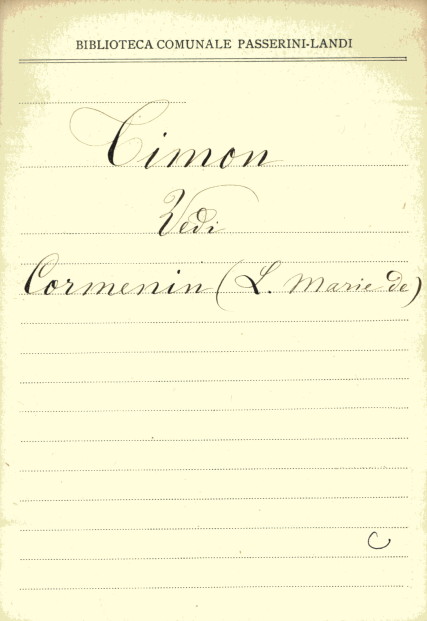 BIBLIOTECA COMUNALE PASSERINI-LANDI
Timon
Vedi
Cormenin (L. Marie de)
C